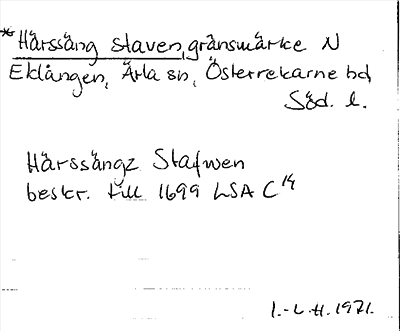 *Härssäng staven, gränsmärke N
Eklången, Ärla sn, Österrekarne hd,
Söd. l.
Härssängz Stafwen
beskr. till 1699 LSA C¹⁴
I.-L.H. 1971.